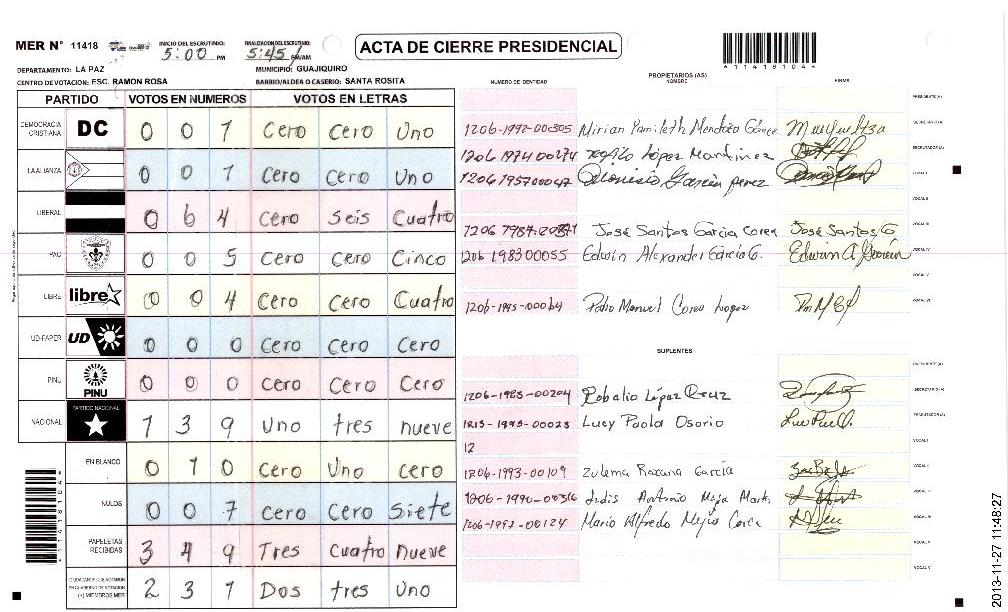 MER N° 11418 INICIO DEL ESCRUTINIO: 5:00 PM FINALIZACION DEL ESCRUTINIO: 5:45 PM/AM ACTA DE CIERRE PRESIDENCIAL
DEPARTAMENTO: LA PAZ MUNICIPIO: GUAJIQUIRO *1141810 4*
CENTRO DE VOTACION: ESC. RAMON ROSA BARRIO/ALDEA O CASERIO: SANTA ROSITA
NUMERO DE IDENTIDAD PROPIETARIOS (AS) NOMBRE FIRMA
PARTIDO VOTOS EN NUMEROS VOTOS EN LETRAS
DEMOCRACIA CRISTIANA DC 0 0 1 Cero Cero Uno
LA ALIANZA 0 0 1 Cero Cero Uno
LIBERAL 0 6 4 Cero Seis Cuatro
PAC 0 0 5 Cero Cero Cinco
LIBRE libre 0 0 4 Cero Cero Cuatro
UD-FAPER UD 0 0 0 Cero Cero Cero
PINU PINU 0 0 0 Cero Cero Cero
NACIONAL PARTIDO NACIONAL 1 3 9 Uno tres nueve
EN BLANCO 0 1 0 Cero Uno cero
NULOS 0 0 7 Cero Cero Siete
PAPELETAS RECIBIDAS 3 4 9 Tres Cuatro nueve
CIUDADANOS QUE VOTARON EN CUADERNO DE VOTACION (+) MIEMBROS MER 2 3 1 Dos tres Uno
PRESIDENTE (A)
1206-1992-00305 Mirian Yamileth Mendoza Gómez SECRETARIO (A)
1206 1974 00274 López Martinez ESCRUTADOR (A)
1206 1957 00047 Dionisio Garcia perez VOCAL I
VOCAL II
José Santos Garcia Corea José Santos G VOCAL III
1206 1983 00055 Edwin Alexander García G. Edwin A García VOCAL IV
VOCAL V
1206-1995-00064 Manuel Corea Lopez VOCAL VI
SUPLENTES
PRESIDENTE (A)
1206-1985-00204 Robalio López Cruz SECRETARIO (A)
1213-1993-00023 Lucy Paola Osorio ESCRUTADOR (A)
12 VOCAL I
1206-1993-00109 Zulema Roxana García VOCAL II
1206-1990-00316 Antonio Mejia Mart. VOCAL III
1206-1997-00124 Mario Alfredo Mejia Corea VOCAL IV
VOCAL V
2013-11-27 11:48:27